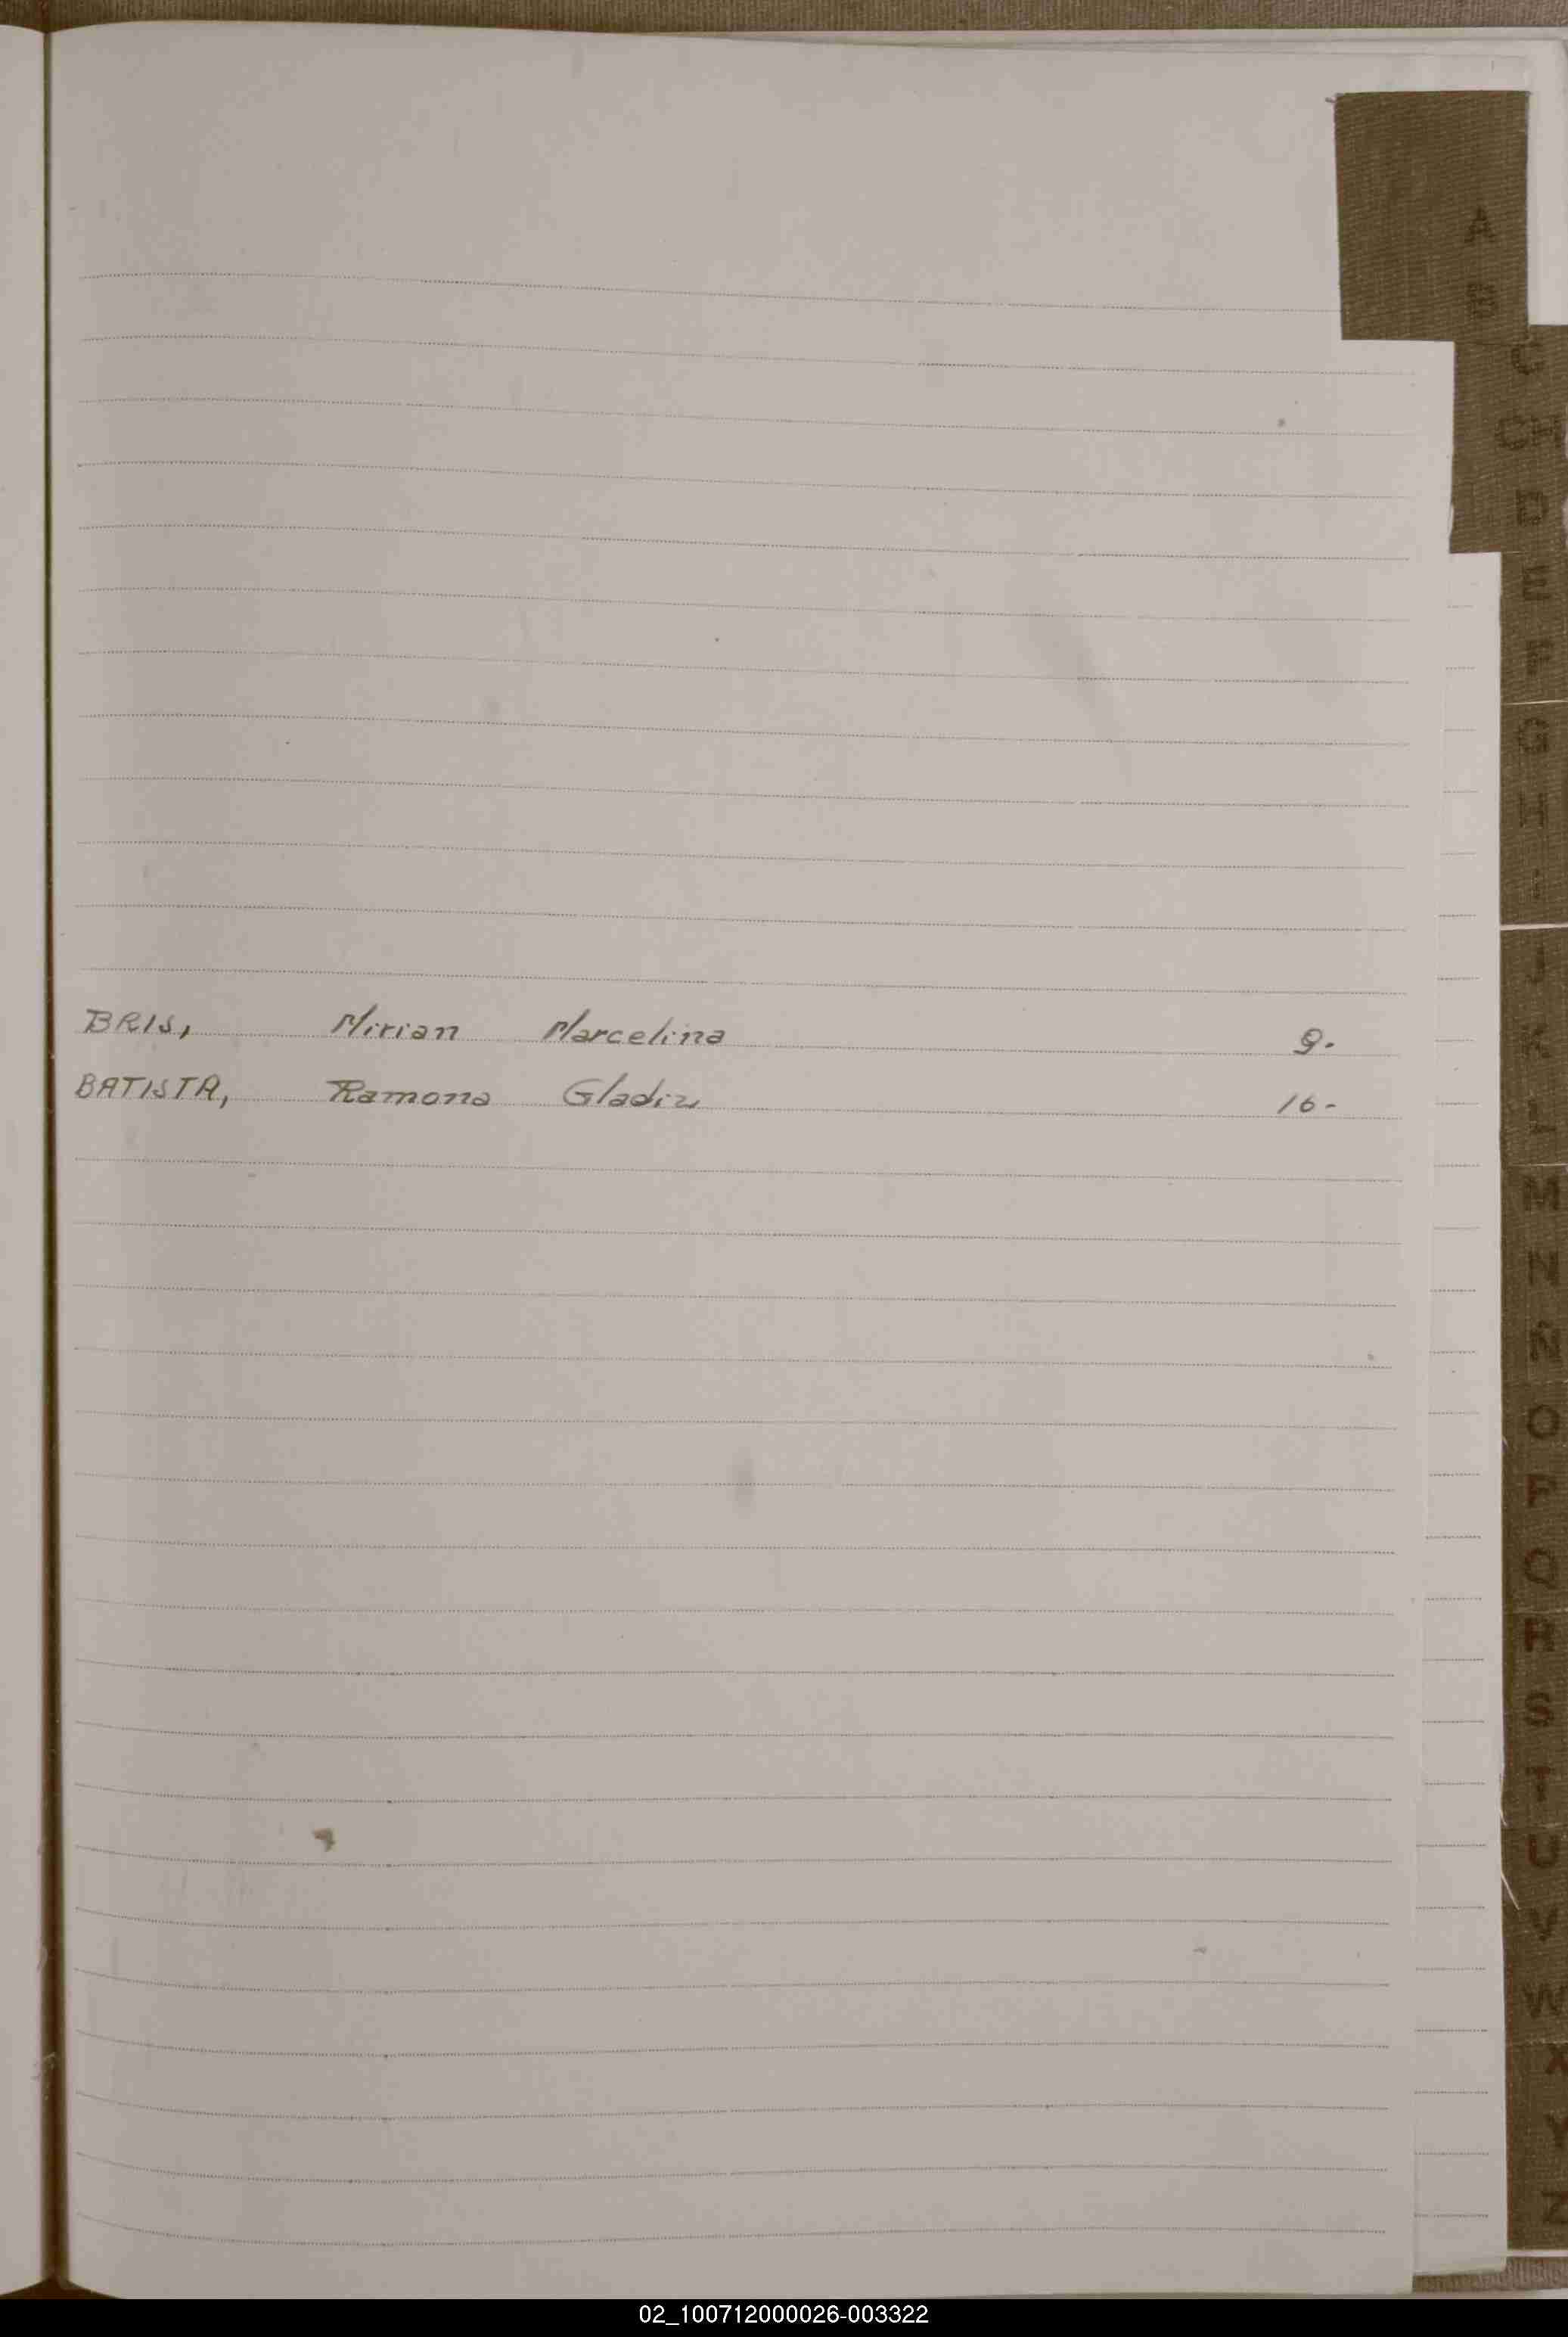 A
B
C
CH
D
E
F
G
H
I
J
K
L
M
N
Ñ
O
P
Q
R
S
T
U
V
W
X
Y
Z
BRIS, Mirian Marcelina 9.
BATISTA, Ramona Gladiz 16-
02_100712000026-003322